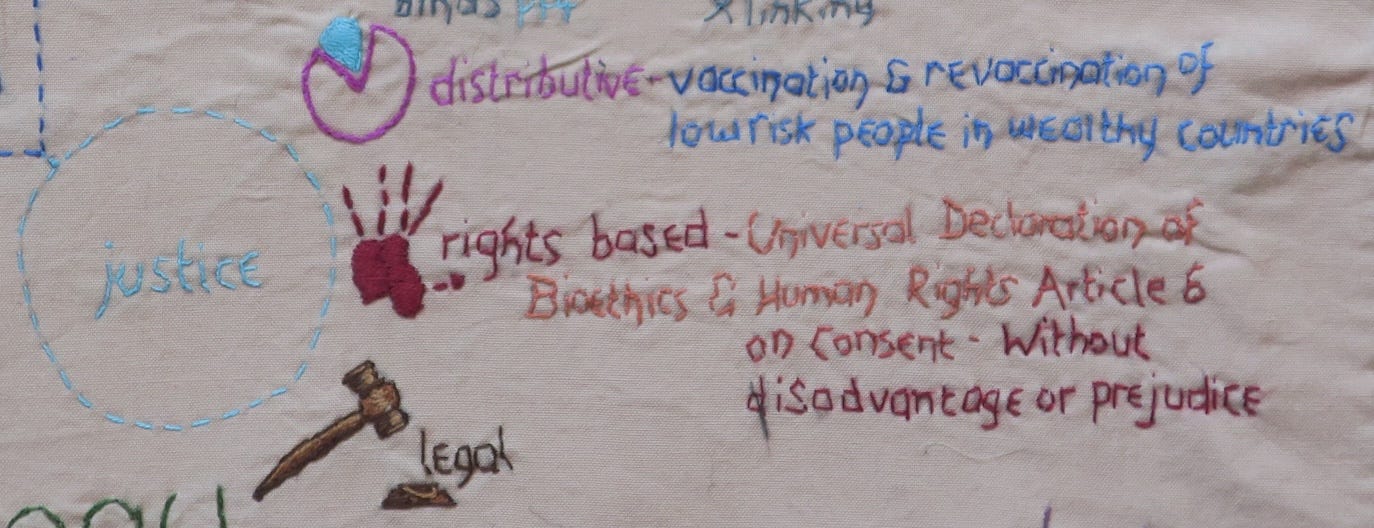 distributive - vaccination & revaccination of
low risk people in wealthy countries
justice
rights based - Universal Declaration of
Bioethics & Human Rights Article 6
on consent - Without
disadvantage or prejudice
legal